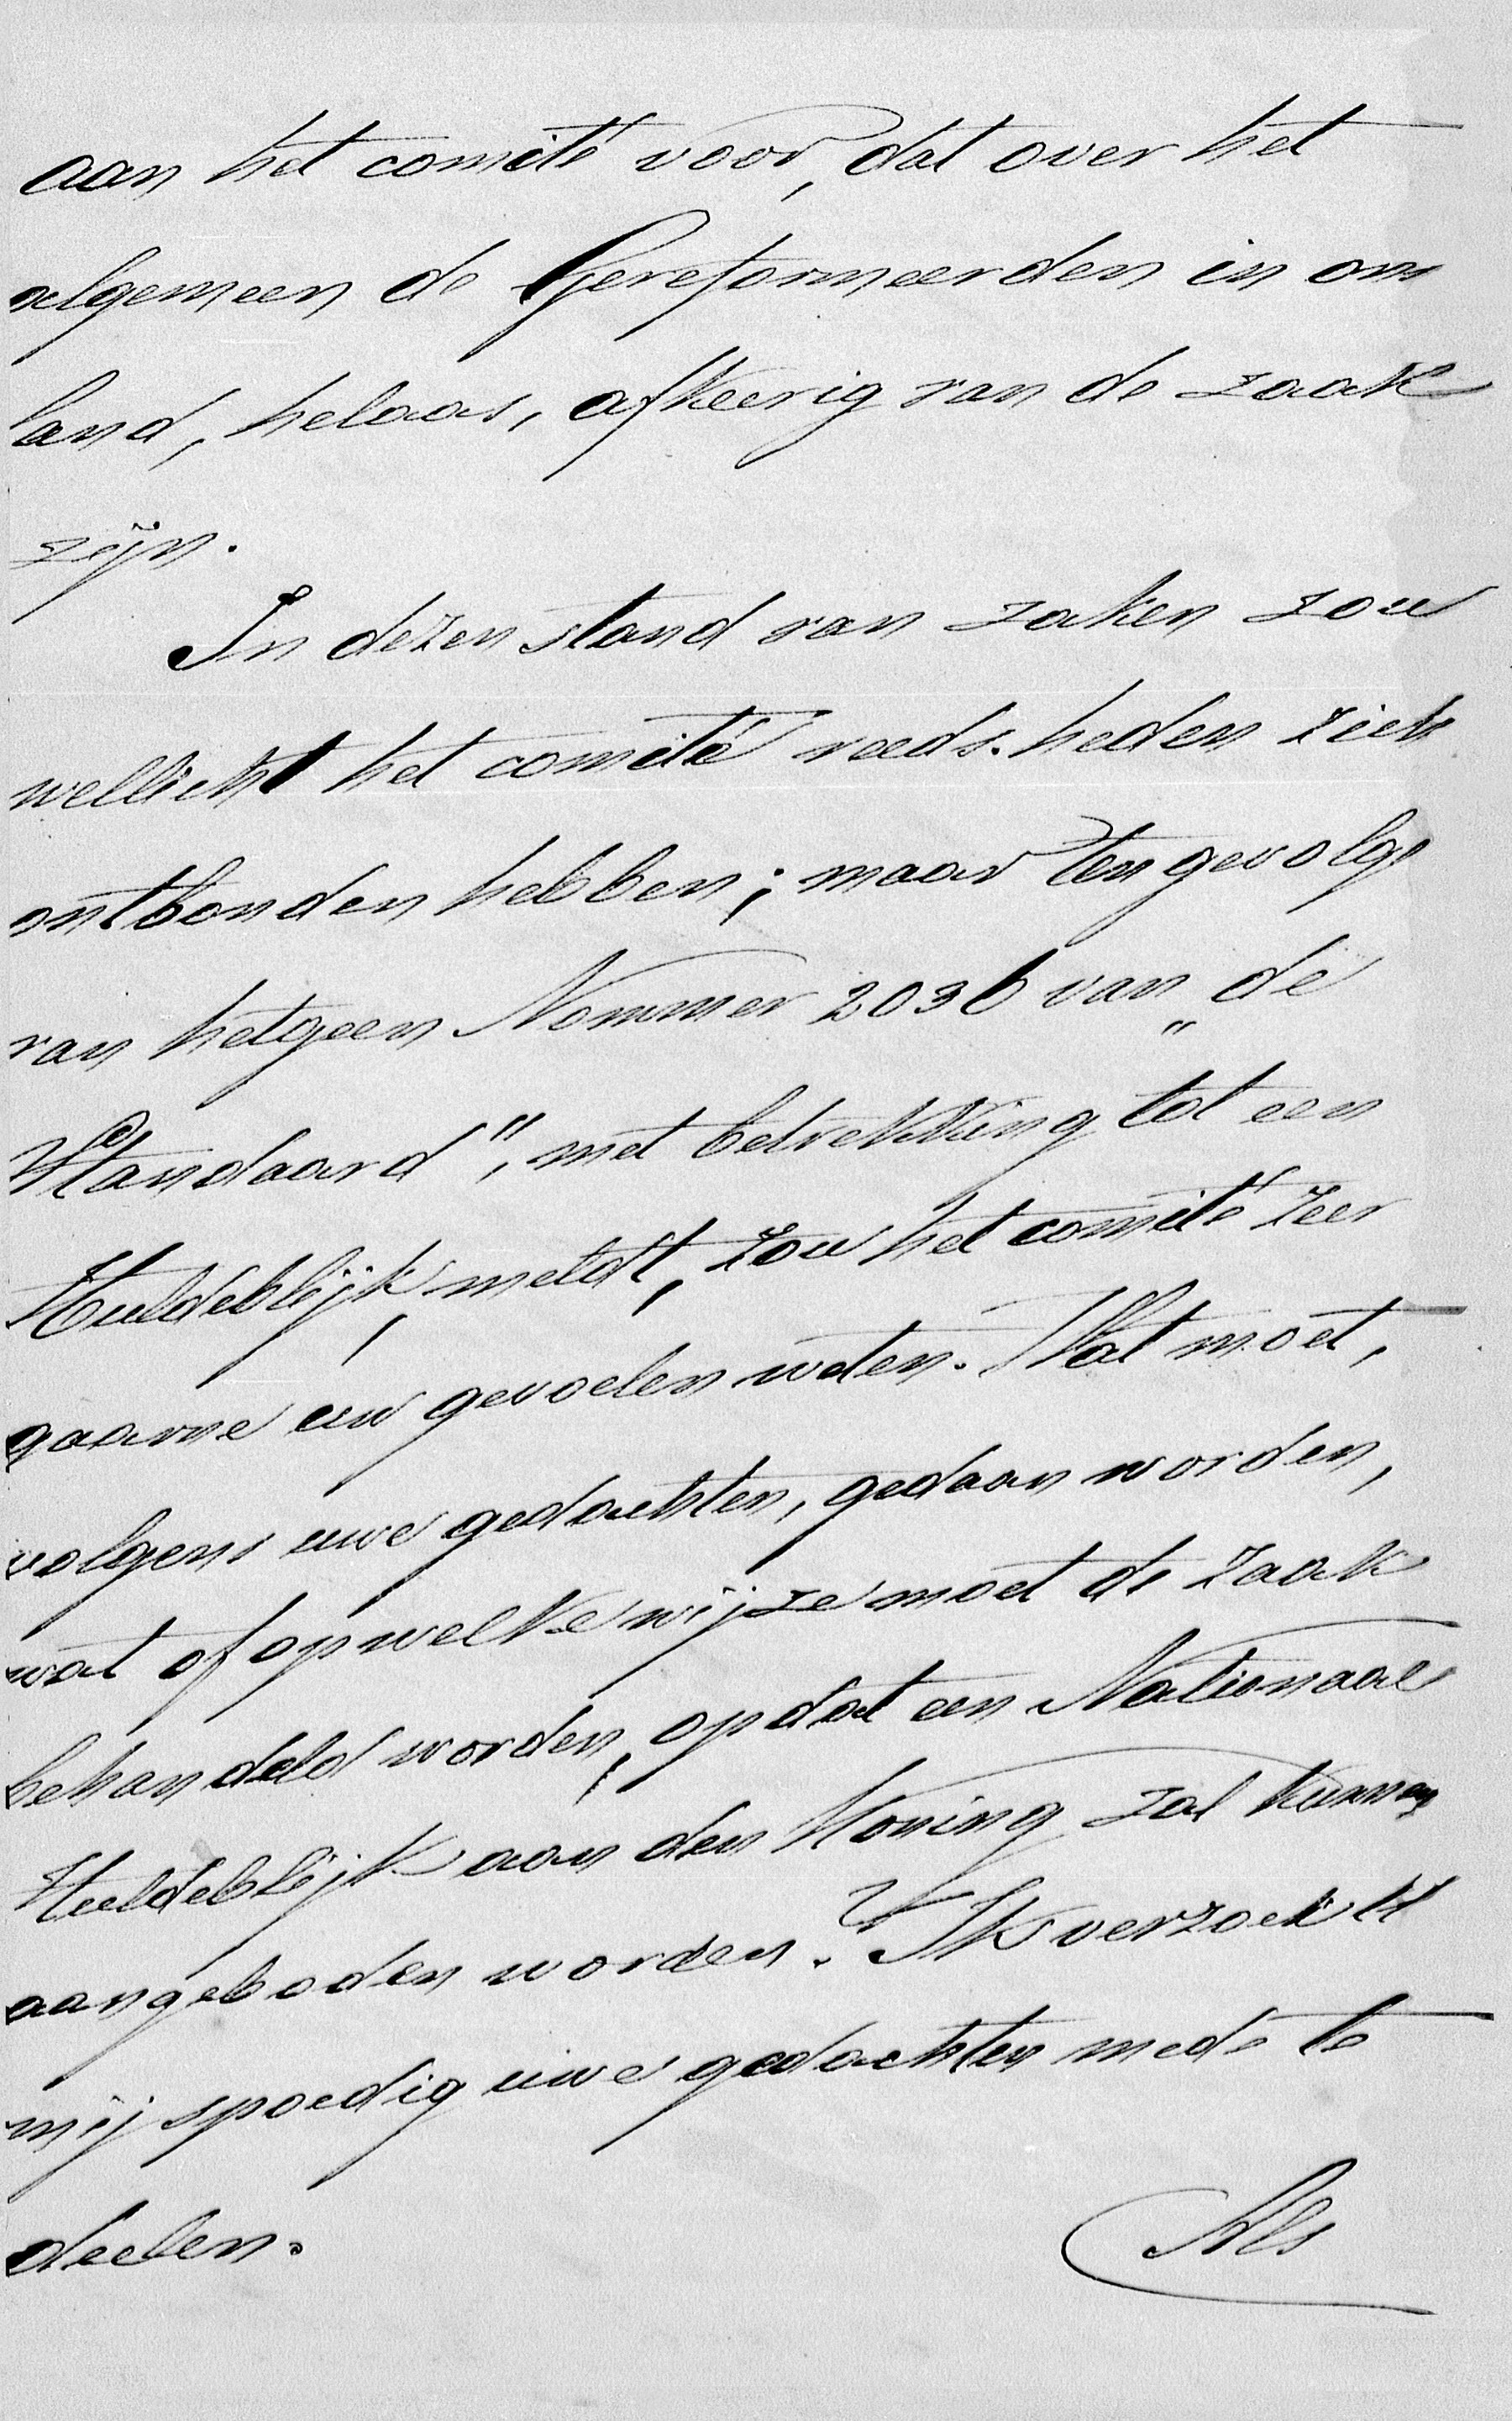 aan het comité voor, dat over het
algemeen de Gereformeerden in ons
land, helaas, afkeerig van de zaak
zijn.
In dezen stand van zaken zou
wellicht het comité reeds heden zich
ontbonden hebben; maar ten gevolge
van hetgeen Nommer 2036 van „de
Standaard", met betrekking tot een
Huldeblijk, meldt, zou het comité zeer
gaarne uw gevoelen weten. Wat moet,
volgens uwe gedachten, gedaan worden,
wat of op welke wijze moet de zaak
behandeld worden, opdat een Nationaal
Huldeblijk aan den Koning zal kunnen
aangeboden worden? Ik verzoek U
mij spoedig uwe gedachten mede te
deelen.
Als